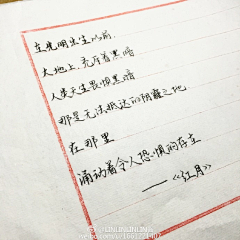 在光明出生以前，
大地上，充斥着黑暗
人类天生畏惧黑暗
那是无法抵达的阴霾之地.
在那里
涌动着令人恐惧的存在
——《红月》